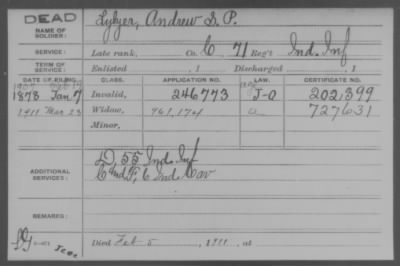 DEAD
NAME OF SOLDIER: Lykyer, Andrew S. P.
SERVICE: Late rank, Co. C 71 Reg't Ind. Inf
TERM OF SERVICE: Enlisted , 1 Discharged , 1
DATE OF FILING. CLASS. APPLICATION NO. LAW. CERTIFICATE NO.
1907
1878 Jan 7 Invalid, 246773 J-O 202,399
1911 Mar 23 Widow, 961,174 a 727631
Minor,
ADDITIONAL SERVICES: D, 55 Ind. Inf
C and F, 6 Ind. Cav
REMARKS:
Died Feb 5 , 1911, at